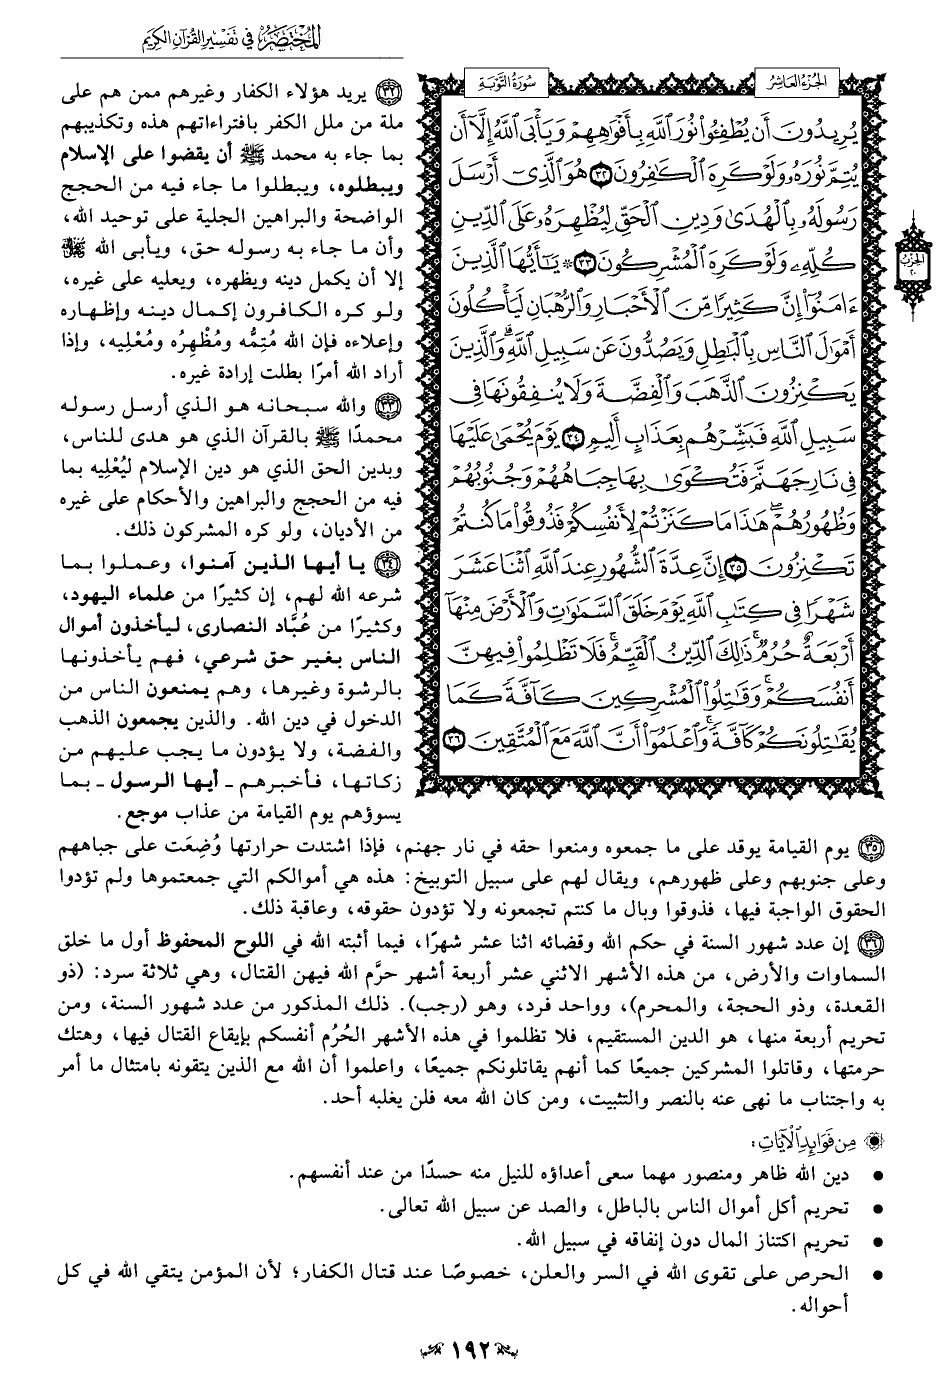 المختصر في تفسير القرآن الكريم
الجزء العاشر
سورة التوبة
يُرِيدُونَ أَن يُطْفِـُٔوا۟ نُورَ ٱللَّهِ بِأَفْوَٰهِهِمْ وَيَأْبَى ٱللَّهُ إِلَّآ أَن
يُتِمَّ نُورَهُۥ وَلَوْ كَرِهَ ٱلْكَٰفِرُونَ ٣٢ هُوَ ٱلَّذِىٓ أَرْسَلَ
رَسُولَهُۥ بِٱلْهُدَىٰ وَدِينِ ٱلْحَقِّ لِيُظْهِرَهُۥ عَلَى ٱلدِّينِ
كُلِّهِۦ وَلَوْ كَرِهَ ٱلْمُشْرِكُونَ ٣٣ ۞ يَٰٓأَيُّهَا ٱلَّذِينَ
ءَامَنُوٓا۟ إِنَّ كَثِيرًا مِّنَ ٱلْأَحْبَارِ وَٱلرُّهْبَانِ لَيَأْكُلُونَ
أَمْوَٰلَ ٱلنَّاسِ بِٱلْبَٰطِلِ وَيَصُدُّونَ عَن سَبِيلِ ٱللَّهِ ۗ وَٱلَّذِينَ
يَكْنِزُونَ ٱلذَّهَبَ وَٱلْفِضَّةَ وَلَا يُنفِقُونَهَا فِى
سَبِيلِ ٱللَّهِ فَبَشِّرْهُم بِعَذَابٍ أَلِيمٍ ٣٤ يَوْمَ يُحْمَىٰ عَلَيْهَا
فِى نَارِ جَهَنَّمَ فَتُكْوَىٰ بِهَا جِبَاهُهُمْ وَجُنُوبُهُمْ
وَظُهُورُهُمْ ۖ هَٰذَا مَا كَنَزْتُمْ لِأَنفُسِكُمْ فَذُوقُوا۟ مَا كُنتُمْ
تَكْنِزُونَ ٣٥ إِنَّ عِدَّةَ ٱلشُّهُورِ عِندَ ٱللَّهِ ٱثْنَا عَشَرَ
شَهْرًا فِى كِتَٰبِ ٱللَّهِ يَوْمَ خَلَقَ ٱلسَّمَٰوَٰتِ وَٱلْأَرْضَ مِنْهَآ
أَرْبَعَةٌ حُرُمٌ ۚ ذَٰلِكَ ٱلدِّينُ ٱلْقَيِّمُ ۚ فَلَا تَظْلِمُوا۟ فِيهِنَّ
أَنفُسَكُمْ ۚ وَقَٰتِلُوا۟ ٱلْمُشْرِكِينَ كَآفَّةً كَمَا
يُقَٰتِلُونَكُمْ كَآفَّةً ۚ وَٱعْلَمُوٓا۟ أَنَّ ٱللَّهَ مَعَ ٱلْمُتَّقِينَ ٣٦
الحزب
٢٠
٣٢ يريد هؤلاء الكفار وغيرهم ممن هم على
ملة من ملل الكفر بافتراءاتهم هذه وتكذيبهم
بما جاء به محمد ﷺ أن يقضوا على الإسلام
ويبطلوه، ويبطلوا ما جاء فيه من الحجج
الواضحة والبراهين الجلية على توحيد الله،
وأن ما جاء به رسوله حق، ويأبى الله ﷻ
إلا أن يكمل دينه ويظهره، ويعليه على غيره،
ولو كره الكافرون إكمال دينه وإظهاره
وإعلاءه فإن الله مُتِمُّه ومُظْهِرُه ومُعْلِيه، وإذا
أراد الله أمرًا بطلت إرادة غيره.
٣٣ والله سبحانه هو الذي أرسل رسوله
محمدًا ﷺ بالقرآن الذي هو هدى للناس،
وبدين الحق الذي هو دين الإسلام ليُعْلِيه بما
فيه من الحجج والبراهين والأحكام على غيره
من الأديان، ولو كره المشركون ذلك.
٣٤ يا أيها الذين آمنوا، وعملوا بما
شرعه الله لهم، إن كثيرًا من علماء اليهود،
وكثيرًا من عُبَّاد النصارى، ليأخذون أموال
الناس بغير حق شرعي، فهم يأخذونها
بالرشوة وغيرها، وهم يمنعون الناس من
الدخول في دين الله. والذين يجمعون الذهب
والفضة، ولا يؤدون ما يجب عليهم من
زكاتها، فأخبرهم - أيها الرسول - بما
يسوؤهم يوم القيامة من عذاب موجع.
٣٥ يوم القيامة يوقد على ما جمعوه ومنعوا حقه في نار جهنم، فإذا اشتدت حرارتها وُضِعَت على جباههم
وعلى جنوبهم وعلى ظهورهم، ويقال لهم على سبيل التوبيخ: هذه هي أموالكم التي جمعتموها ولم تؤدوا
الحقوق الواجبة فيها، فذوقوا وبال ما كنتم تجمعونه ولا تؤدون حقوقه، وعاقبة ذلك.
٣٦ إن عدد شهور السنة في حكم الله وقضائه اثنا عشر شهرًا، فيما أثبته الله في اللوح المحفوظ أول ما خلق
السماوات والأرض، من هذه الأشهر الاثني عشر أربعة أشهر حرَّم الله فيهن القتال، وهي ثلاثة سرد: (ذو
القعدة، وذو الحجة، والمحرم)، وواحد فرد، وهو (رجب). ذلك المذكور من عدد شهور السنة، ومن
تحريم أربعة منها، هو الدين المستقيم، فلا تظلموا في هذه الأشهر الحُرُم أنفسكم بإيقاع القتال فيها، وهتك
حرمتها، وقاتلوا المشركين جميعًا كما أنهم يقاتلونكم جميعًا، واعلموا أن الله مع الذين يتقونه بامتثال ما أمر
به واجتناب ما نهى عنه بالنصر والتثبيت، ومن كان الله معه فلن يغلبه أحد.
من فوائد الآيات:
• دين الله ظاهر ومنصور مهما سعى أعداؤه للنيل منه حسدًا من عند أنفسهم.
• تحريم أكل أموال الناس بالباطل، والصد عن سبيل الله تعالى.
• تحريم اكتناز المال دون إنفاقه في سبيل الله.
• الحرص على تقوى الله في السر والعلن، خصوصًا عند قتال الكفار؛ لأن المؤمن يتقي الله في كل
أحواله.
١٩٢